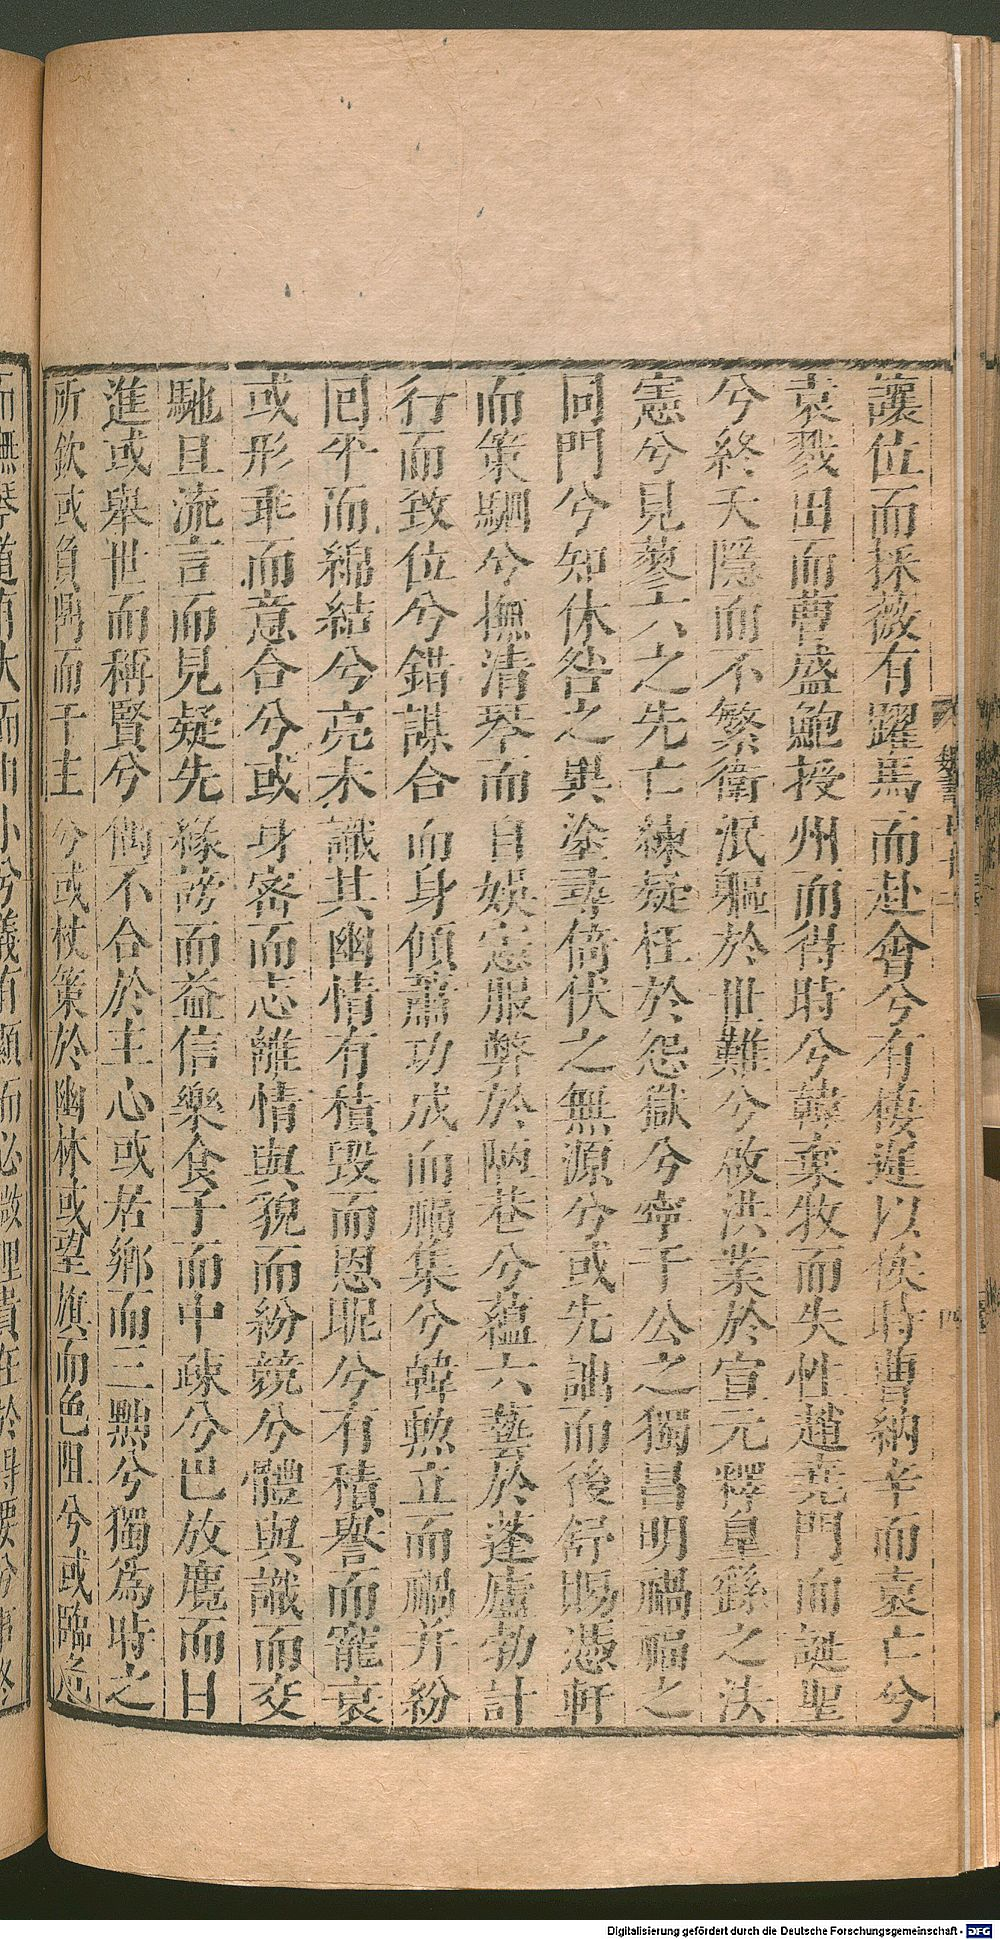 讓位而採薇有躍馬而赴會兮有棲遲以俟時曹納辛而哀亡兮
袁戮田而曹盛鮑授州而得時兮韓棄牧而失性趙堯門而誕聖
兮終天隱而不繁衛泯軀於世難兮啟洪業於宣元釋皇繇之法
憲兮見蓼六之先亡練疑枉於怨獄兮寧于公之獨昌明禍福之
同門兮知休咎之異塗尋倚伏之無源兮或先詘而後舒賜憑軒
而策駟兮撫清琴而自娛憲服弊於陋巷兮蘊六藝於蓬廬勃計
行而致位兮錯謀合而身傾蕭功成而福集兮韓勲立而禍并紛
回平而綿結兮亮未識其幽情有積毀而恩昵兮有積譽而寵衰
或形乖而意合兮或身密而志離情與貌而紛競兮體與識而交
馳且流言而見疑先緣謗而益信樂食子而中疎兮巴放麑而日
進或舉世而稱賢兮偶不合於主心或居鄉而三黜兮獨爲時之
所欽或負鬲而干主兮或杖策於幽林或望旗而色阻兮或臨危
魏書
四
Digitalisierung gefördert durch die Deutsche Forschungsgemeinschaft - DFG